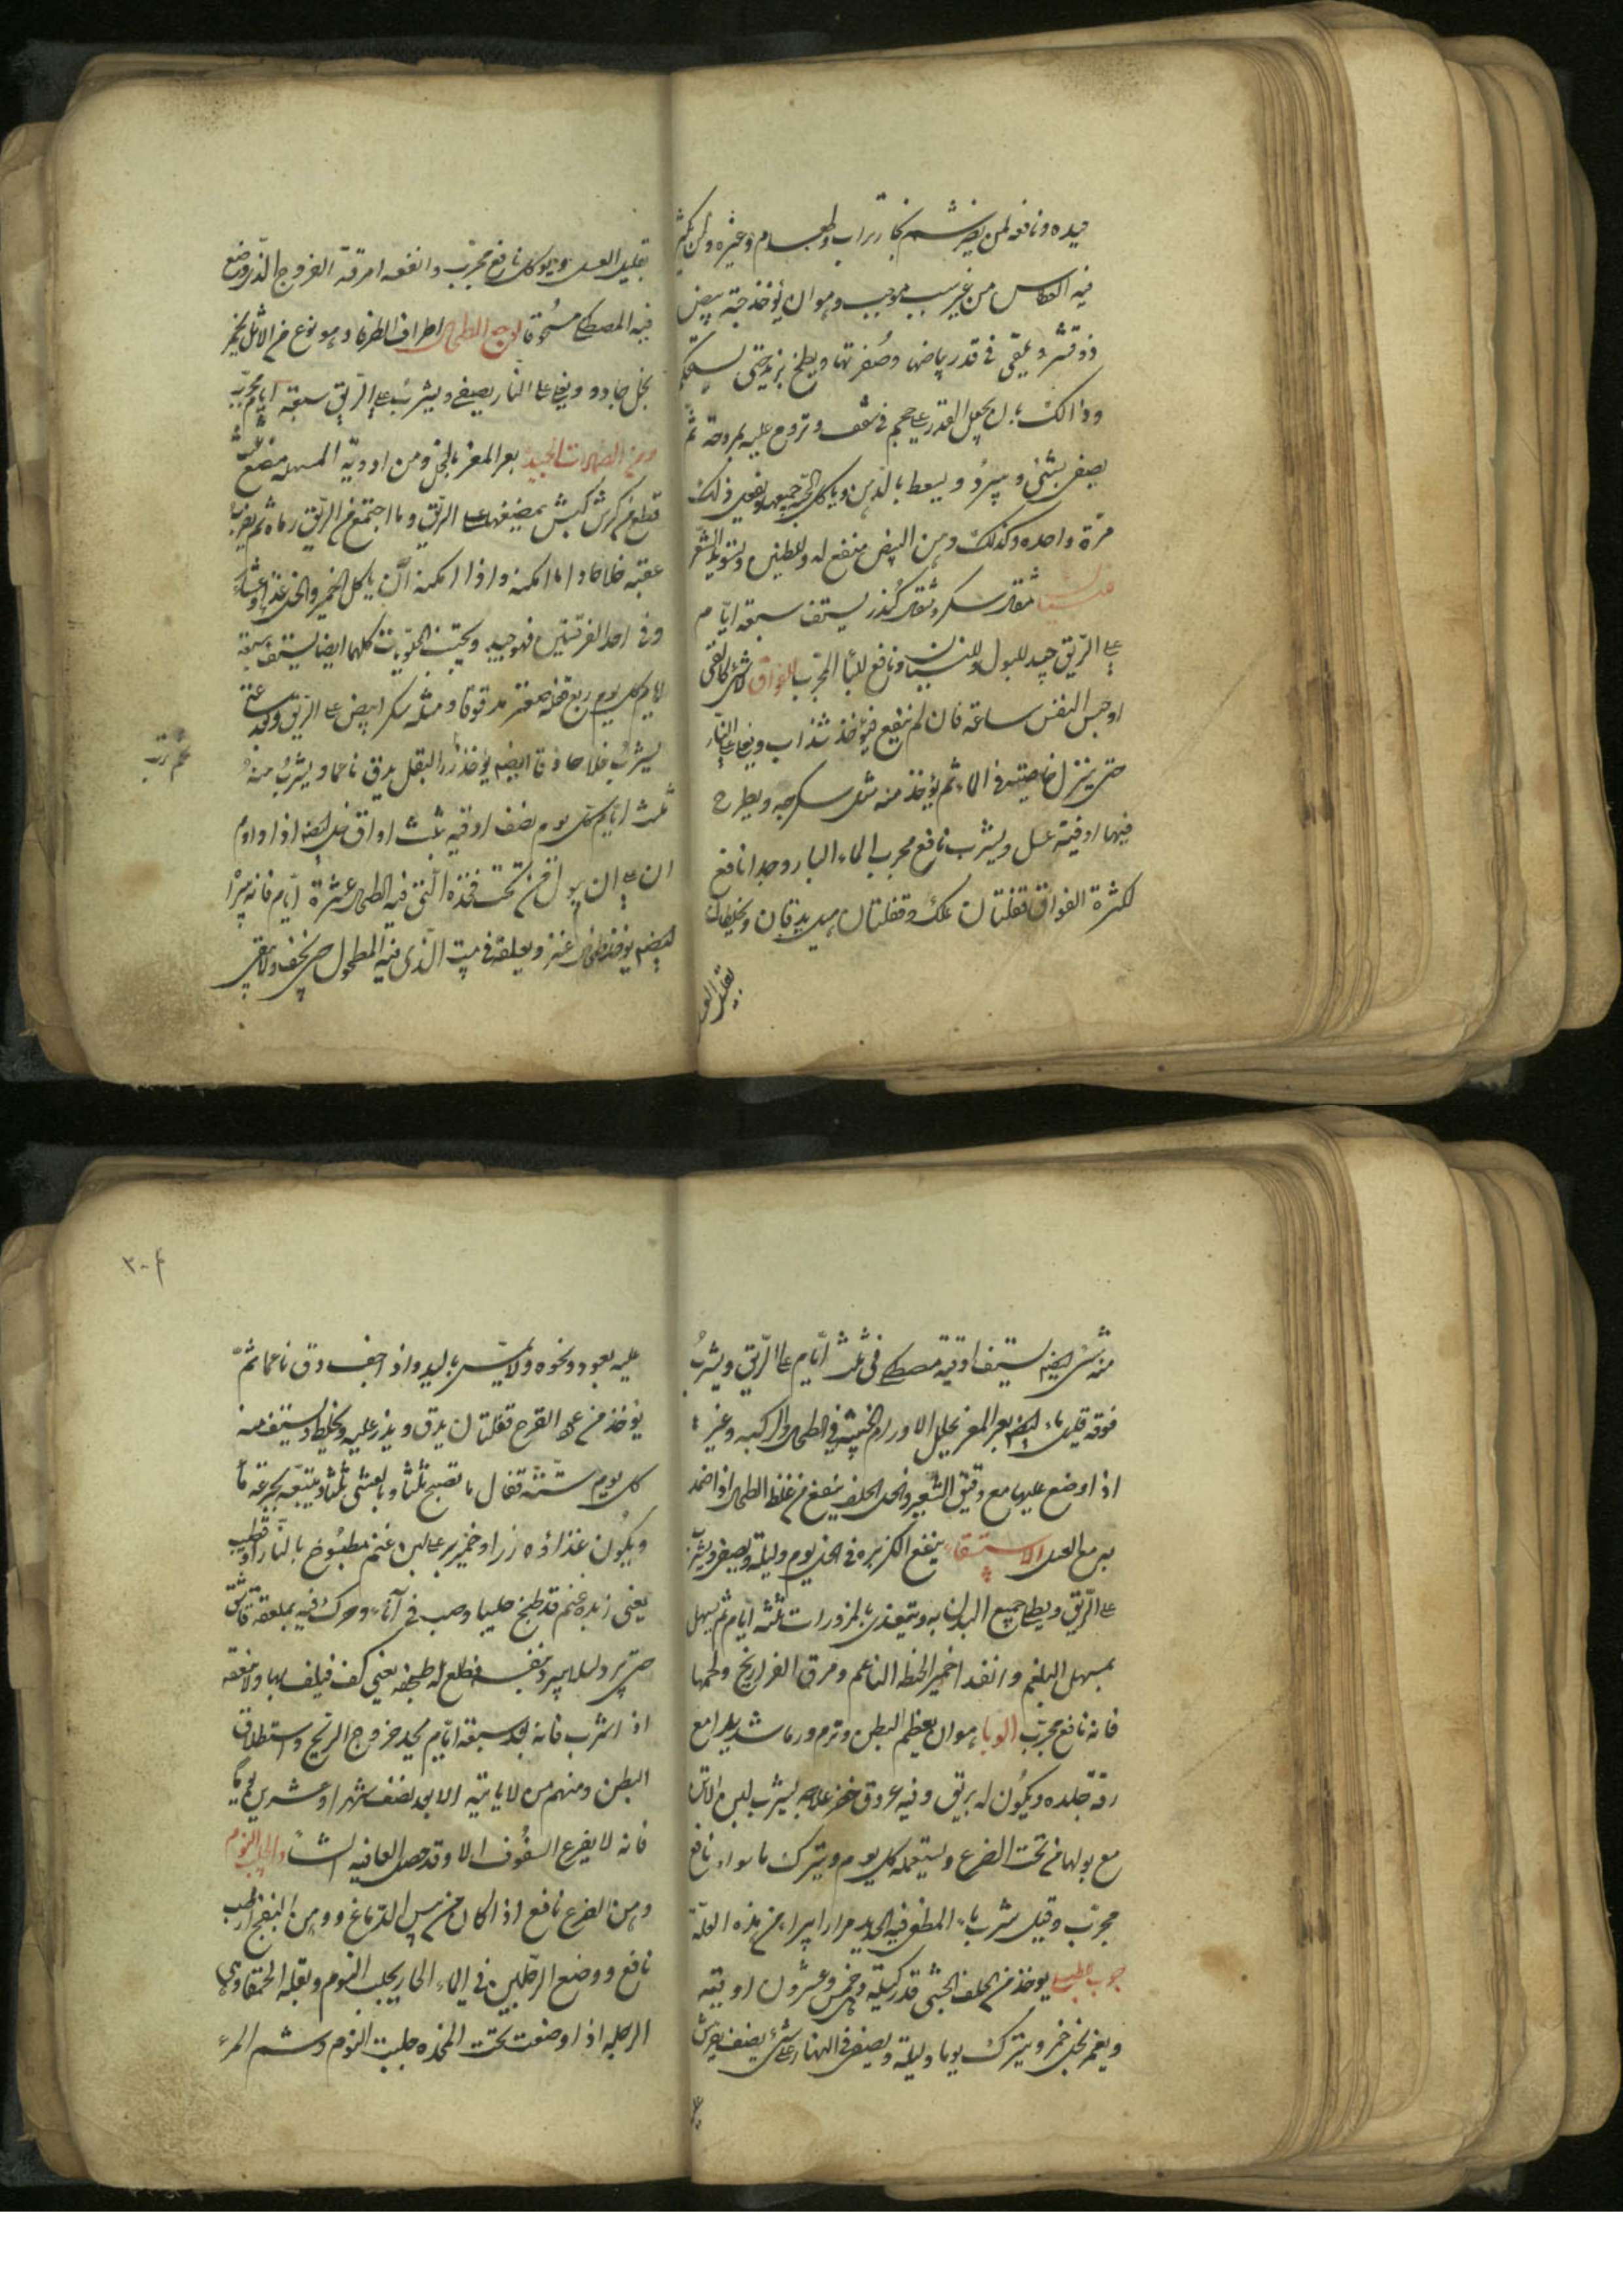 جيده ونافعه لمن يضره شم بخار تراب وطعام وغيره ولمن يكثر
فيه العطاس من غير سبب موجب وهو ان يؤخذ حبة بيض
ويبقى في قدر بياضها وصفرتها ويطبخ بزيت حتى
وذالك بان يجعل القدر على جمر في شقف وتروح عليه بمروحة ثم
يصفى بشئ ويبرد ويسعط بالدهن وياكل الحبه جميعها ويفعل ذلك
مرة واحده وكذلك دهن البيض منفع له وللطنين
مثقال سكر ومثقال كندر يستف سبعة ايام
على الريق جيد للبول وللنسيان ونافع المجرب الفواق لا شئ كالقئ
او حبس النفس ساعة فان لم ينفع فيؤخذ شذاب ويغلى على النار
حتى ينزل خاصيته في الماء ثم يؤخذ منه مثل سكرجه ويطرح
فيها اوقية عسل ويشرب نافع مجرب الماء البارد جدا نافع
لكثرة الفواق قفلتان علك وقفلتان يدقان ويخلطان
بقليل العسل
بقليل العسل ويوكل نافع مجرب وانفعه امرقة الفروج الذى وضع
فيه المصطكى مسحوقا لوجع الطحال اطراف الطرفا وهو نوع من الاثل
بخل حاذق ويغلى على النار يصفى ويشرب على الريق سبعة ايام مجرب
ومن الضمادات الجيدة بعر المعز بالخل ومن ادوية المسهله مضغ ثلث
قطع من كرش كبش يمضغها على الريق وما اجتمع من الريق رماه ثم يشرب
عقبه خلا حاذقا ما امكنه واذا امكنه ان ياكل الخمير والخل غذاء وعشاء
وفى احد الفرقتين فهو جيد ويجتنب الحلويات كلها ايضا يستف سبعة
ايام كل يوم ربع قفله صعتر مدقوقا ومثله سكر ابيض على الريق وبعد
يشرب خلا حاذقا ايضا يؤخذ البقل يدق ناعما ويشرب منه
ثلث ايام كل يوم نصف اوقيه بثلث اواق خل ايضا اذا داوم
ان على ان يبول من تحت فخذه التى فيه الطحال عشرة ايام فانه يبرا
ايضا يؤخذ طحال عنز ويعلقه في بيت الذى فيه المطحول حتى يجف ولا يبقى
منه شئ ايضا يستف اوقية مصطكى في ثلث ايام على الريق ويشرب
فوقه قليل ماء ايضا بعر المعز يحلل الاورام الخبيثه في الطحال والركبه وغيره
اذا وضع عليها مع دقيق الشعير والخل الحلف ينفع من غلظ الطحال اذا ضمد
به مع العسل الاستسقاء ينقع الكزبره في الخل يوم وليلة ويصفى ويشرب
على الريق ويطلى جميع البدن به ويتغذى بالمزورات ثلثه ايام ثم يسهل
بمسهل البلغم وانفعه اخمير الحنطه الناعم ومرق الفراريخ ولحمها
فانه نافع مجرب الوبا هو ان يعظم البطن وترم ورما شديدا مع
رقة جلده ويكون له بريق وفيه عروق خضر علاجه يشرب لبن الاتن
مع بولها من تحت الضرع ويستعمله كل يوم ويترك ما سواه نافع
مجرب وقيل شرب الماء المطفى فيه الحديد مرارا يبرا من هذه العلة
يؤخذ من الحلف الحبشى قدر كيلة وخمس وعشرون اوقيه
ويغمر بخل خمر ويترك يوما وليلة ويصفى في النهار على شئ نصف يوم ثم يرش
عليه
٣٠٤
عليه بعود ونحوه ولا يمس باليد واذا جف دق ناعما ثم
يؤخذ من القرح قفلتان يدق ويذر عليه ويخلط ويستف منه
كل يوم ستة قفال بالصبح ثلثا وبالعشى ثلثا ويتبعه بجرعة ماء
ويكون غذاؤه زرا وخمير بر على لبن غنم مطبوخ بالنار او قطيب
يعنى زبده غنم قد طبخ حليبا وصب في آناء وحرك فيه بملعقة
حتى برد لئلا يبرد بنفسه فطلع له طبقه يعنى كف فيلف بها ولا منفعه
اذا شرب فانه بعد سبعة ايام يجد خروج الريح واستطلاق
البطن ومنهم من لا ياتيه الا بعد نصف شهر او عشرين يوما
فانه لا يفرغ السفوف الا وقد حصل العافيه ان شا جالب النوم
دهن القرع نافع اذا كان من يبس الدماغ ودهن البنفسج
نافع ووضع الرجلين في الماء الحار يجلب النوم وبقله الحمقا وهى
الرجله اذا وضعت تحت المخده جلبت النوم وشم المر